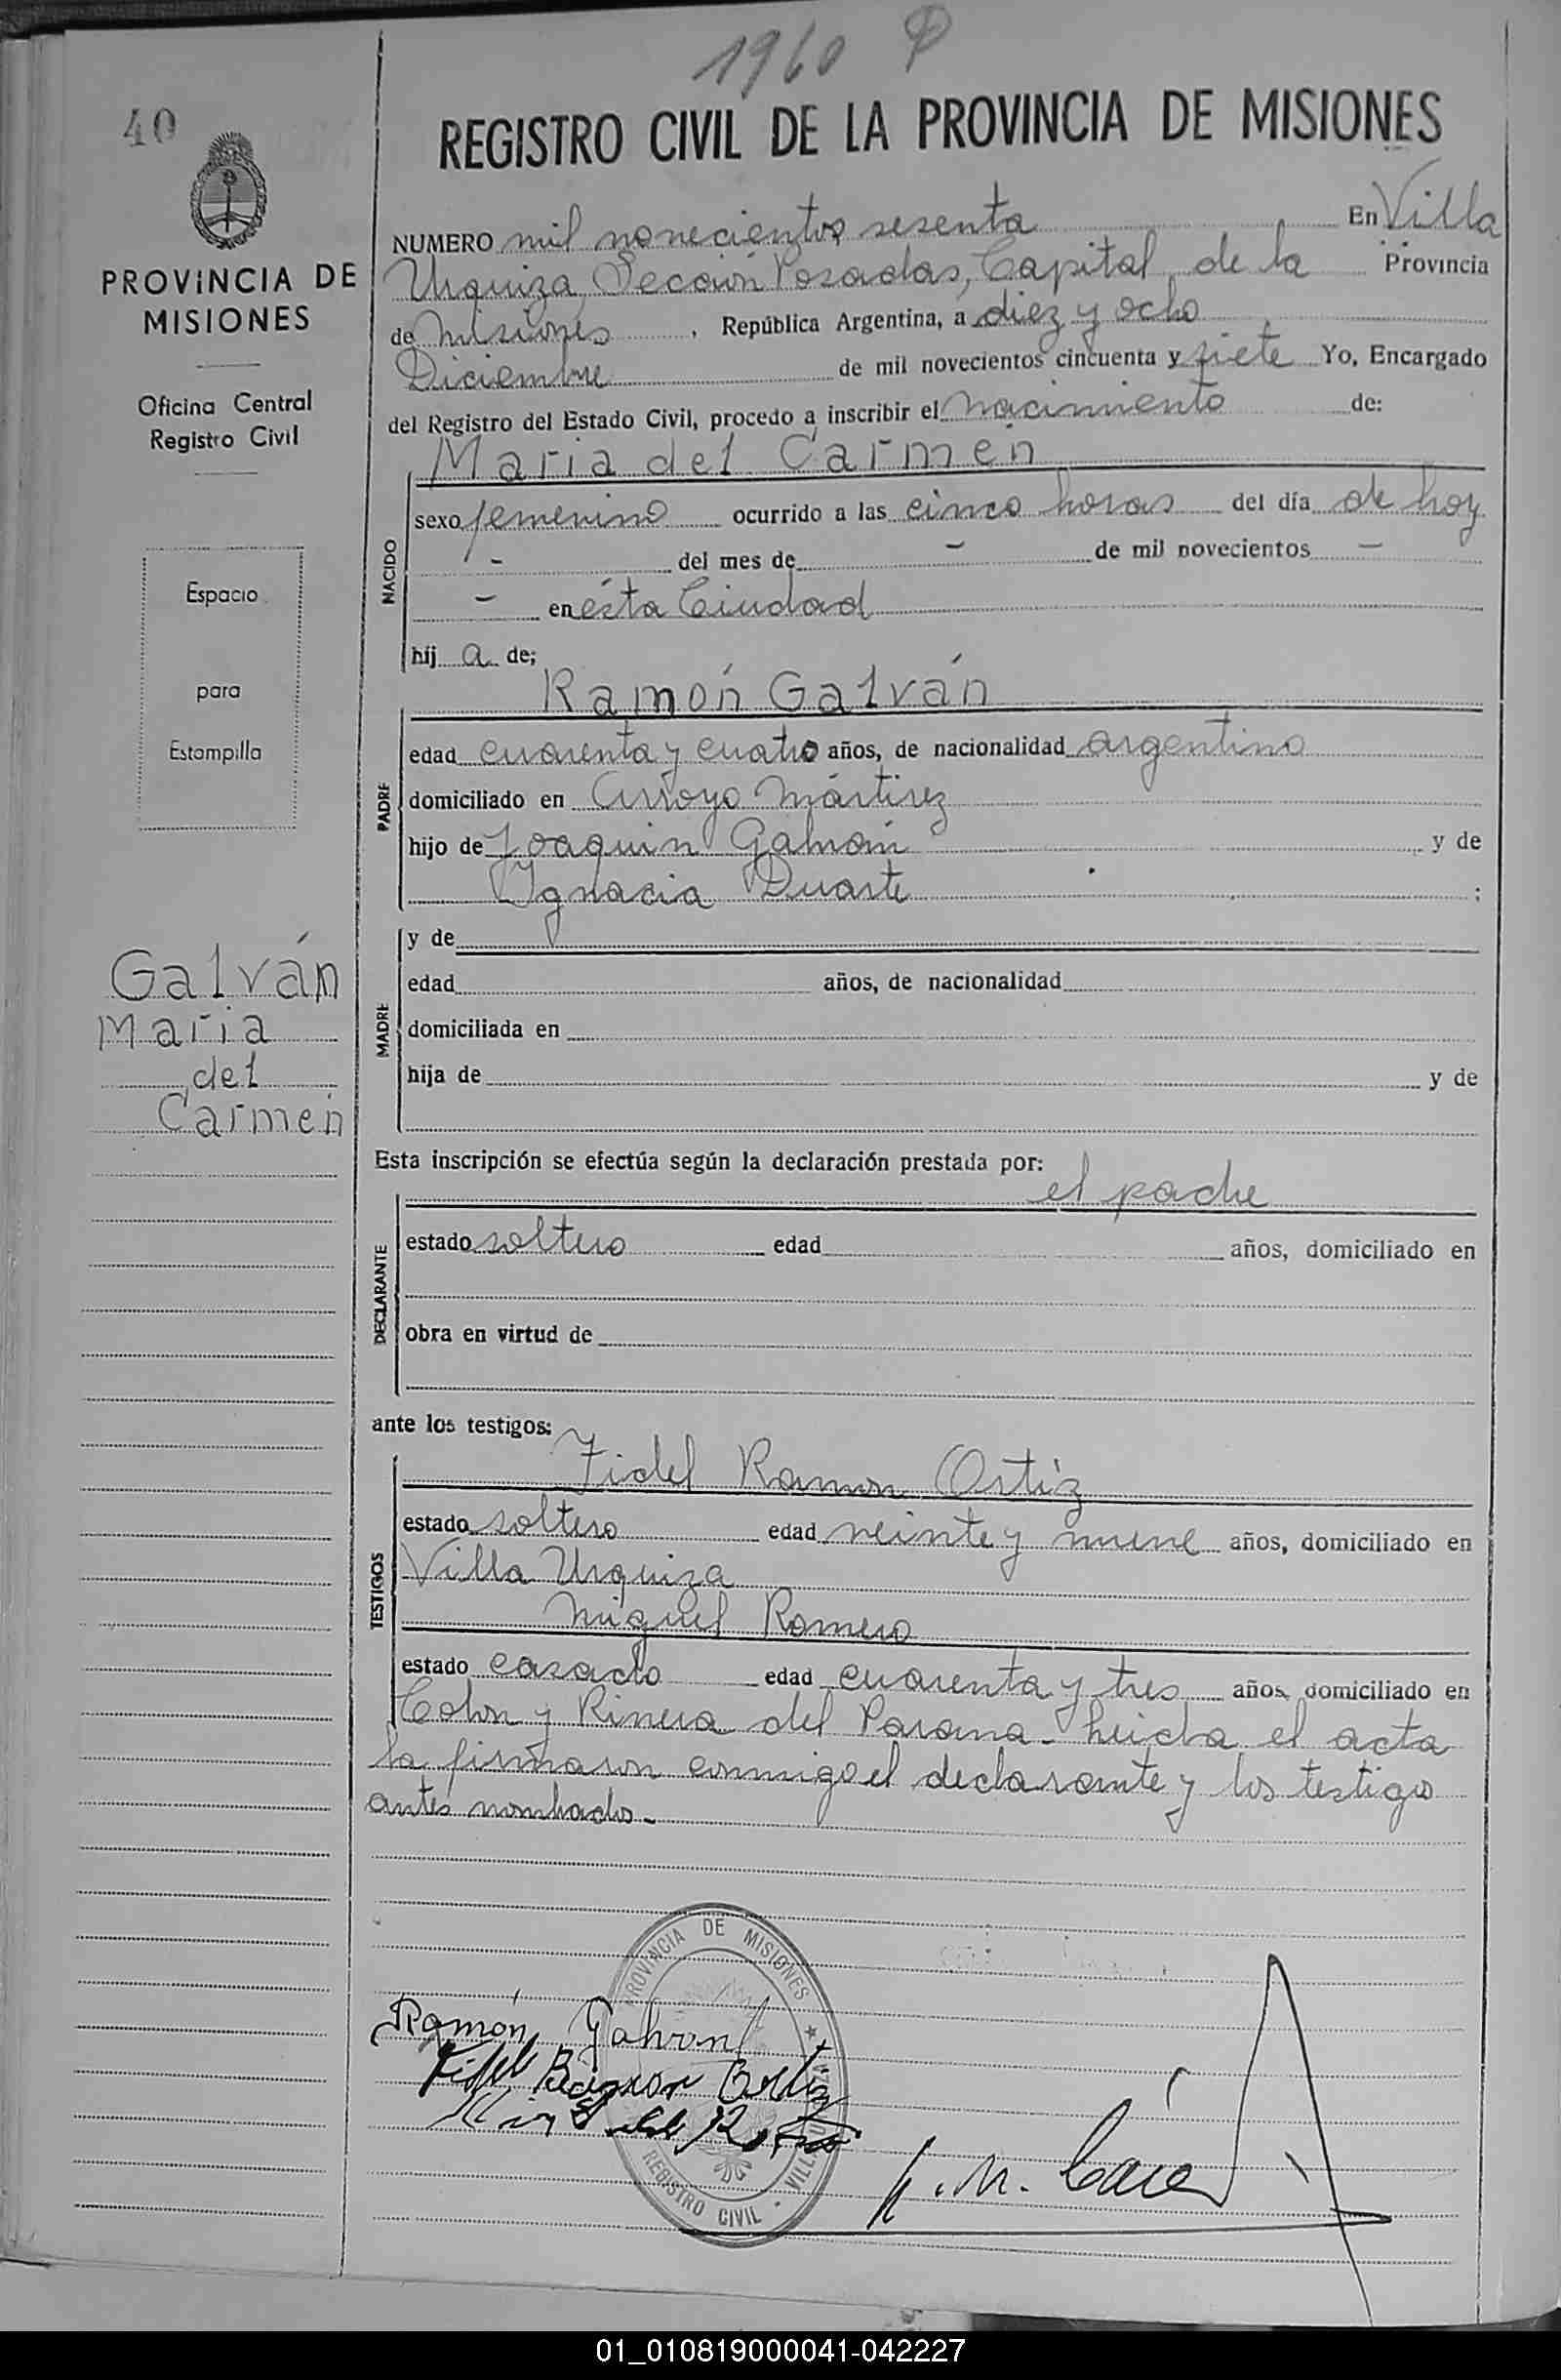 1960
REGISTRO CIVIL DE LA PROVINCIA DE MISIONES
40
PROVINCIA DE
MISIONES
Oficina Central
Registro Civil
Espacio
para
Estampilla
Galván
Maria
del
Carmen
NUMERO mil novecientos sesenta En Villa
Urquiza, Sección Posadas, Capital de la Provincia
de Misiones, República Argentina, a diez y ocho
Diciembre de mil novecientos cincuenta y siete Yo, Encargado
del Registro del Estado Civil, procedo a inscribir el nacimiento de:
NACIDO
Maria del Carmen
sexo femenino ocurrido a las cinco horas del día de hoy
- del mes de - de mil novecientos -
- en ésta Ciudad
hij a de;
PADRE
Ramón Galván
edad cuarenta y cuatro años, de nacionalidad argentino
domiciliado en Arroyo Mártirez
hijo de Joaquin Galván y de
Ignacia Duarte ;
MADRE
y de
edad años, de nacionalidad
domiciliada en
hija de y de
Esta inscripción se efectúa según la declaración prestada por:
DECLARANTE
el padre
estado soltero edad años, domiciliado en
obra en virtud de
ante los testigos:
TESTIGOS
Fidel Ramon Ortiz
estado soltero edad veinte y nueve años, domiciliado en
Villa Urquiza
Miguel Romero
estado casado edad cuarenta y tres años domiciliado en
Colon y Rivera del Parana - heicha el acta
la firmaron conmigo el declarante y los testigos
antes nombrados -
PROVINCIA DE MISIONES
REGISTRO CIVIL
Ramón Galvan
Fidel Ramon Ortiz
01_010819000041-042227